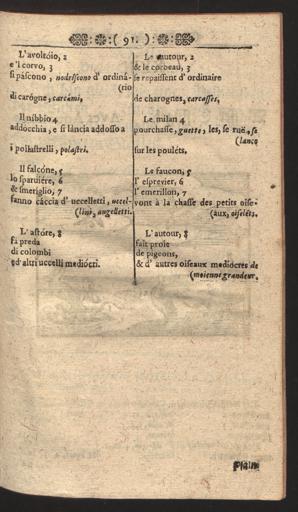 ( 91. )
L'avoltóio, 2
e 'l corvo, 3
si páscono, nodriscono d' ordiná-
(rio
di carógne, carcámi,
Il níbbio 4
addócchia, e si láncia addósso a
i pollastrelli, polastri.
Il falcóne, 5
lo sparviére, 6
& smeríglio, 7
fanno cáccia d' uccelletti, uccel-
(lini, angelletti.
L' astóre, 8
fà preda
di colombi
ed altri uccelli mediócri.
Le vautour, 2
& le corbeau, 3
se repaissent d' ordinaire
de charognes, carcasses,
Le milan 4
pourchasse, guette, les, se ruë, se
(lance
sur les pouléts.
Le faucon, 5
l' esprevier, 6
l' emerillon, 7
vont à la chasse des petits oise-
(aux, oiseléts.
L'autour, 8
fait proie
de pigeons,
& d' autres oiseaux mediocres de
(moienne grandeur.